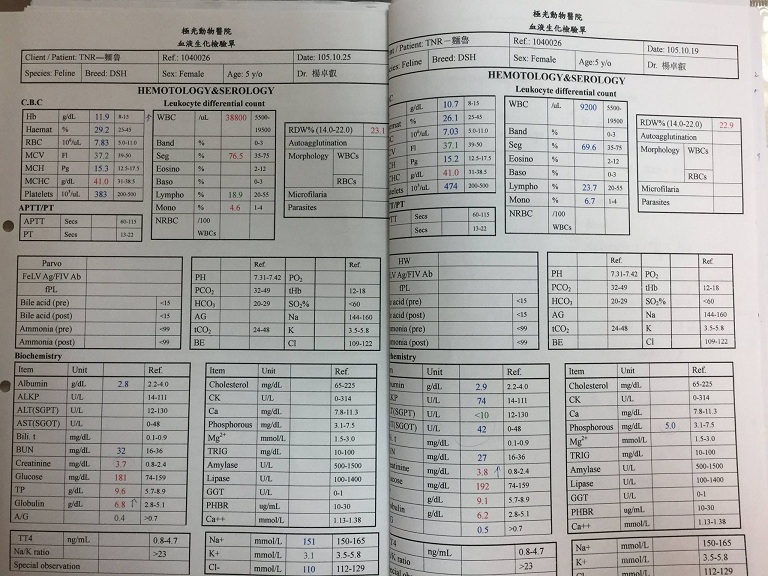 極光動物醫院
血液生化檢驗單
Client / Patient: TNR－麵魯 Ref.: 1040026 Date: 105.10.25
Species: Feline Breed: DSH Sex: Female Age: 5 y/o Dr. 楊卓叡
HEMOTOLOGY&SEROLOGY
C.B.C
Leukocyte differential count
Hb g/dL 11.9 8-15 ↑
Haemat % 29.2 25-45
RBC 10⁶/uL 7.83 5.0-11.0
MCV Fl 37.2 39-50
MCH Pg 15.3 12.5-17.5
MCHC g/dL 41.0 31-38.5
Platelets 10³/uL 383 200-500
APTT/PT
APTT Secs 60-115
PT Secs 13-22
WBC /uL 38800 5500-
19500
Band % 0-3
Seg % 76.5 35-75
Eosino % 2-12
Baso % 0-3
Lympho % 18.9 20-55
Mono % 4.6 1-4
NRBC /100
WBCs
RDW% (14.0-22.0) 23.1
Autoagglutination
Morphology WBCs
RBCs
Microfilaria
Parasites
Parvo
FeLV Ag/FIV Ab
fPL
Bile acid (pre) <15
Bile acid (post) <15
Ammonia (pre) <99
Ammonia (post) <99
Ref. Ref.
PH 7.31-7.42 PO₂
PCO₂ 32-49 tHb 12-18
HCO₃ 20-29 SO₂% <60
AG Na 144-160
tCO₂ 24-48 K 3.5-5.8
BE Cl 109-122
Biochemistry
Item Unit Ref.
Albumin g/dL 2.8 2.2-4.0
ALKP U/L 14-111
ALT(SGPT) U/L 12-130
AST(SGOT) U/L 0-48
Bili. t mg/dL 0.1-0.9
BUN mg/dL 32 16-36
Creatinine mg/dL 3.7 0.8-2.4
Glucose mg/dL 181 74-159
TP g/dL 9.6 5.7-8.9
Globulin g/dL 6.8 ↑ 2.8-5.1
A/G 0.4 >0.7
TT4 ng/mL 0.8-4.7
Na/K ratio >23
Special observation
Item Unit Ref.
Cholesterol mg/dL 65-225
CK U/L 0-314
Ca mg/dL 7.8-11.3
Phosphorous mg/dL 3.1-7.5
Mg²⁺ mmol/L 1.5-3.0
TRIG mg/dL 10-100
Amylase U/L 500-1500
Lipase U/L 100-1400
GGT U/L 0-1
PHBR ug/mL 10-30
Ca++ mmol/L 1.13-1.38
Na+ mmol/L 151 150-165
K+ mmol/L 3.1 3.5-5.8
Cl- mmol/L 110 112-129
極光動物醫院
血液生化檢驗單
/ Patient: TNR－麵魯 Ref.: 1040026 Date: 105.10.19
Feline Breed: DSH Sex: Female Age:5 y/o Dr. 楊卓叡
HEMOTOLOGY&SEROLOGY
Leukocyte differential count
g/dL 10.7 8-15
% 26.1 25-45
10⁶/uL 7.03 5.0-11.0
Fl 37.1 39-50
Pg 15.2 12.5-17.5
g/dL 41.0 31-38.5
10³/uL 474 200-500
Secs 60-115
Secs 13-22
WBC /uL 9200 5500-
19500
Band % 0-3
Seg % 69.6 35-75
Eosino % 2-12
Baso % 0-3
Lympho % 23.7 20-55
Mono % 6.7 1-4
NRBC /100
WBCs
RDW% (14.0-22.0) 22.9
Autoagglutination
Morphology WBCs
RBCs
Microfilaria
Parasites
HW
Ag/FIV Ab
fPL
acid (pre) <15
acid (post) <15
(pre) <99
(post) <99
Ref. Ref.
PH 7.31-7.42 PO₂
PCO₂ 32-49 tHb 12-18
HCO₃ 20-29 SO₂% <60
AG Na 144-160
tCO₂ 24-48 K 3.5-5.8
BE Cl 109-122
Unit Ref.
g/dL 2.9 2.2-4.0
U/L 74 14-111
U/L <10 12-130
U/L 42 0-48
mg/dL 0.1-0.9
mg/dL 27 16-36
mg/dL 3.8 ↑ 0.8-2.4
mg/dL 192 74-159
g/dL 9.1 5.7-8.9
g/dL 6.2 2.8-5.1
0.5 >0.7
ng/mL 0.8-4.7
ratio >23
Item Unit Ref.
Cholesterol mg/dL 65-225
CK U/L 0-314
Ca mg/dL 7.8-11.3
Phosphorous mg/dL 5.0 3.1-7.5
Mg²⁺ mmol/L 1.5-3.0
TRIG mg/dL 10-100
Amylase U/L 500-1500
Lipase U/L 100-1400
GGT U/L 0-1
PHBR ug/mL 10-30
Ca++ mmol/L 1.13-1.38
Na+ mmol/L 150-165
K+ mmol/L 3.5-5.8
Cl- mmol/L 112-129